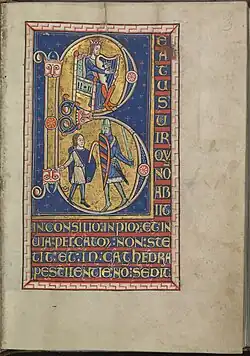 B
E
ATUS
UIR
QVI
NO
AB
IIT
IN CONSILIO INPIOR ET IN
UIA PECCATOR NON STE
TIT ET IN CATHEDRA
PESTILENTIE NO SEDIT